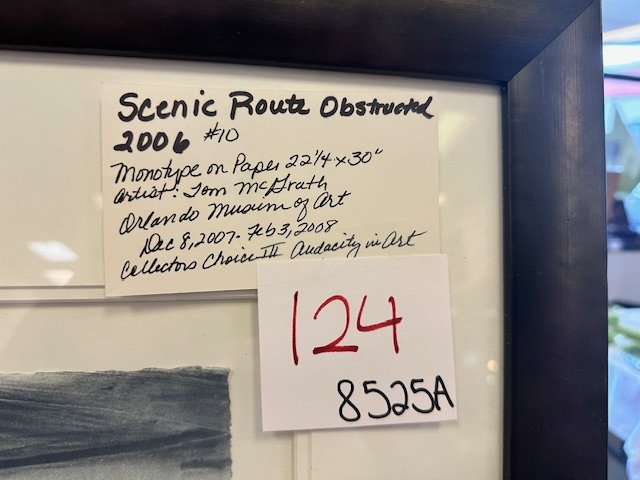 Scenic Route Obstructed
2006 #10
Monotype on Paper 22 1/4 x 30"
Artist: Tom McGrath
Orlando Museum of Art
Dec 8, 2007 - Feb 3, 2008
Collectors Choice III Audacity in Art
124
8525A